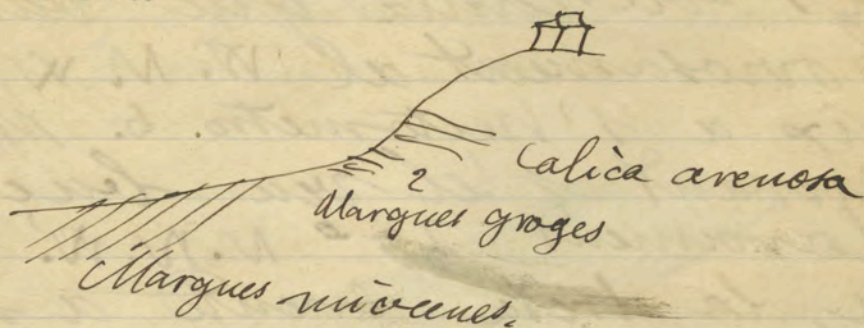 Calica arenosa
2
Margues groges
Margues miocenes.